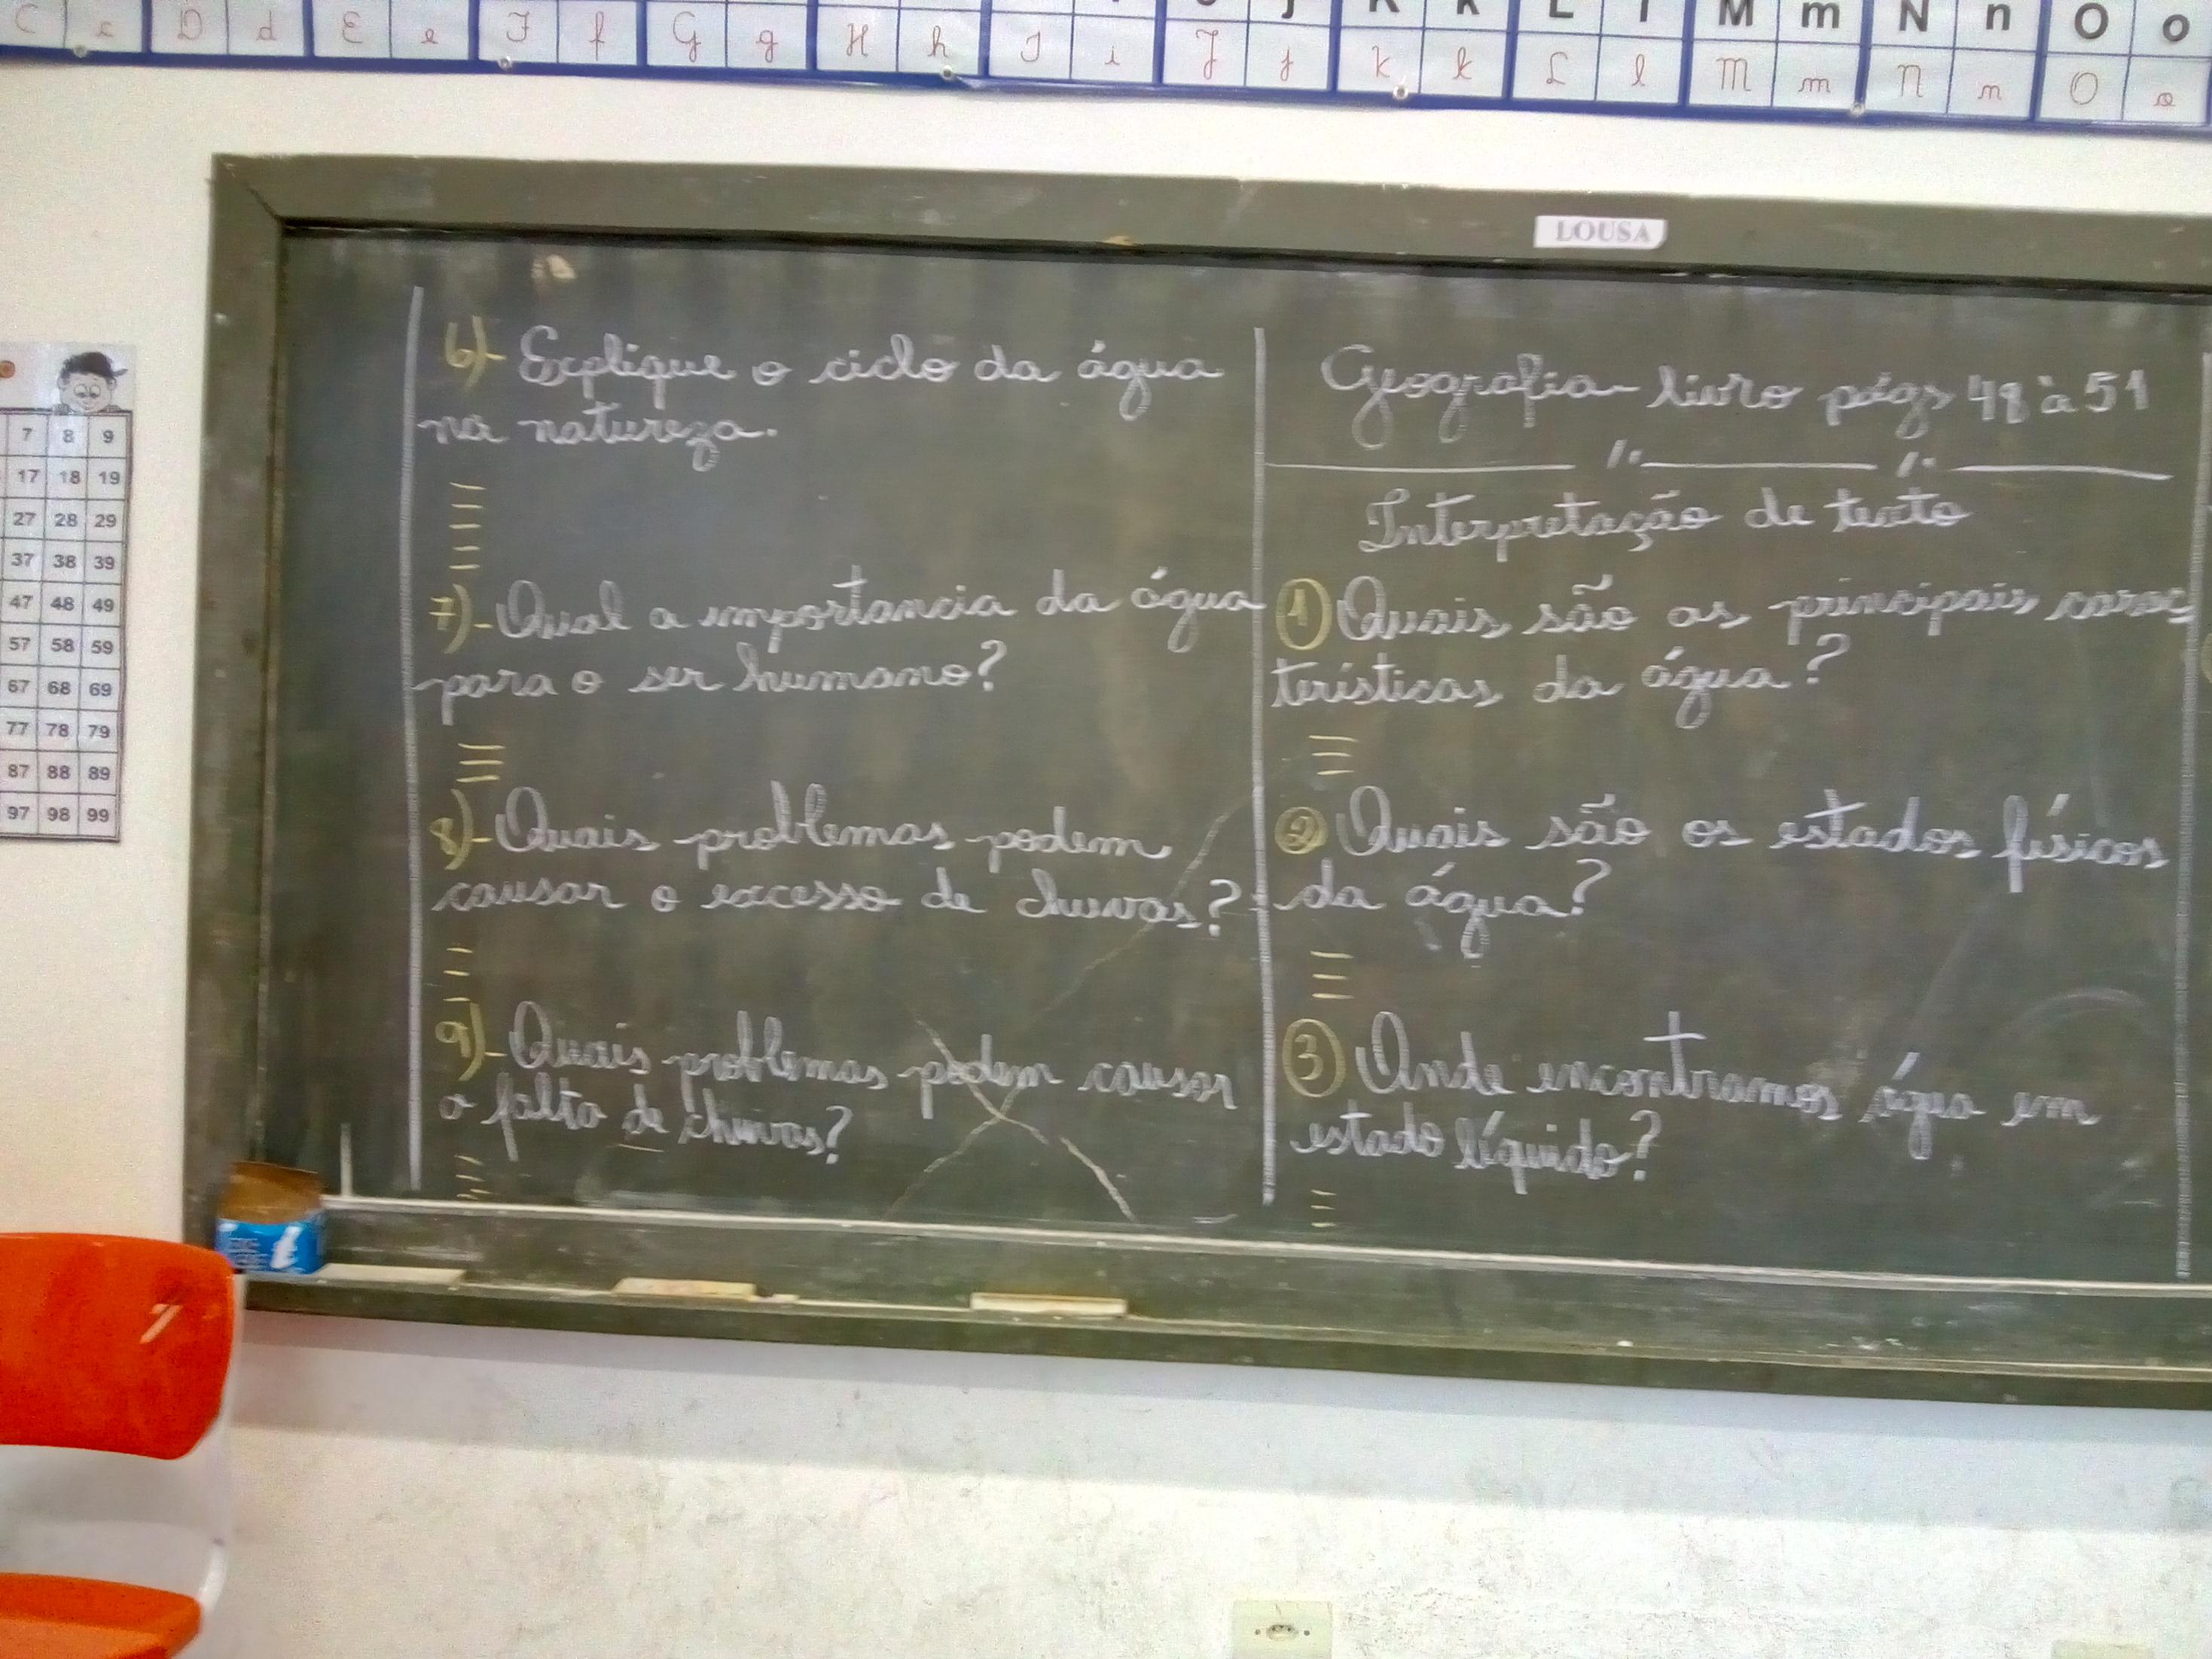 C c D d E e F f G g H h I i J j K k L l M m N n O o
K k L l M m N n O o
LOUSA
6)- Explique o ciclo da água
na natureza.
7)- Qual a importancia da água
para o ser humano?
8)- Quais problemas podem
causar o excesso de chuvas?
9)- Quais problemas podem causar
a falta de chuvas?
Geografia - livro págs 48 à 51
Interpretação de texto
1 Quais são as principais carac
terísticas da água?
2 Quais são os estados físicos
da água?
3 Onde encontramos água em
estado líquido?
7 8 9
17 18 19
27 28 29
37 38 39
47 48 49
57 58 59
67 68 69
77 78 79
87 88 89
97 98 99